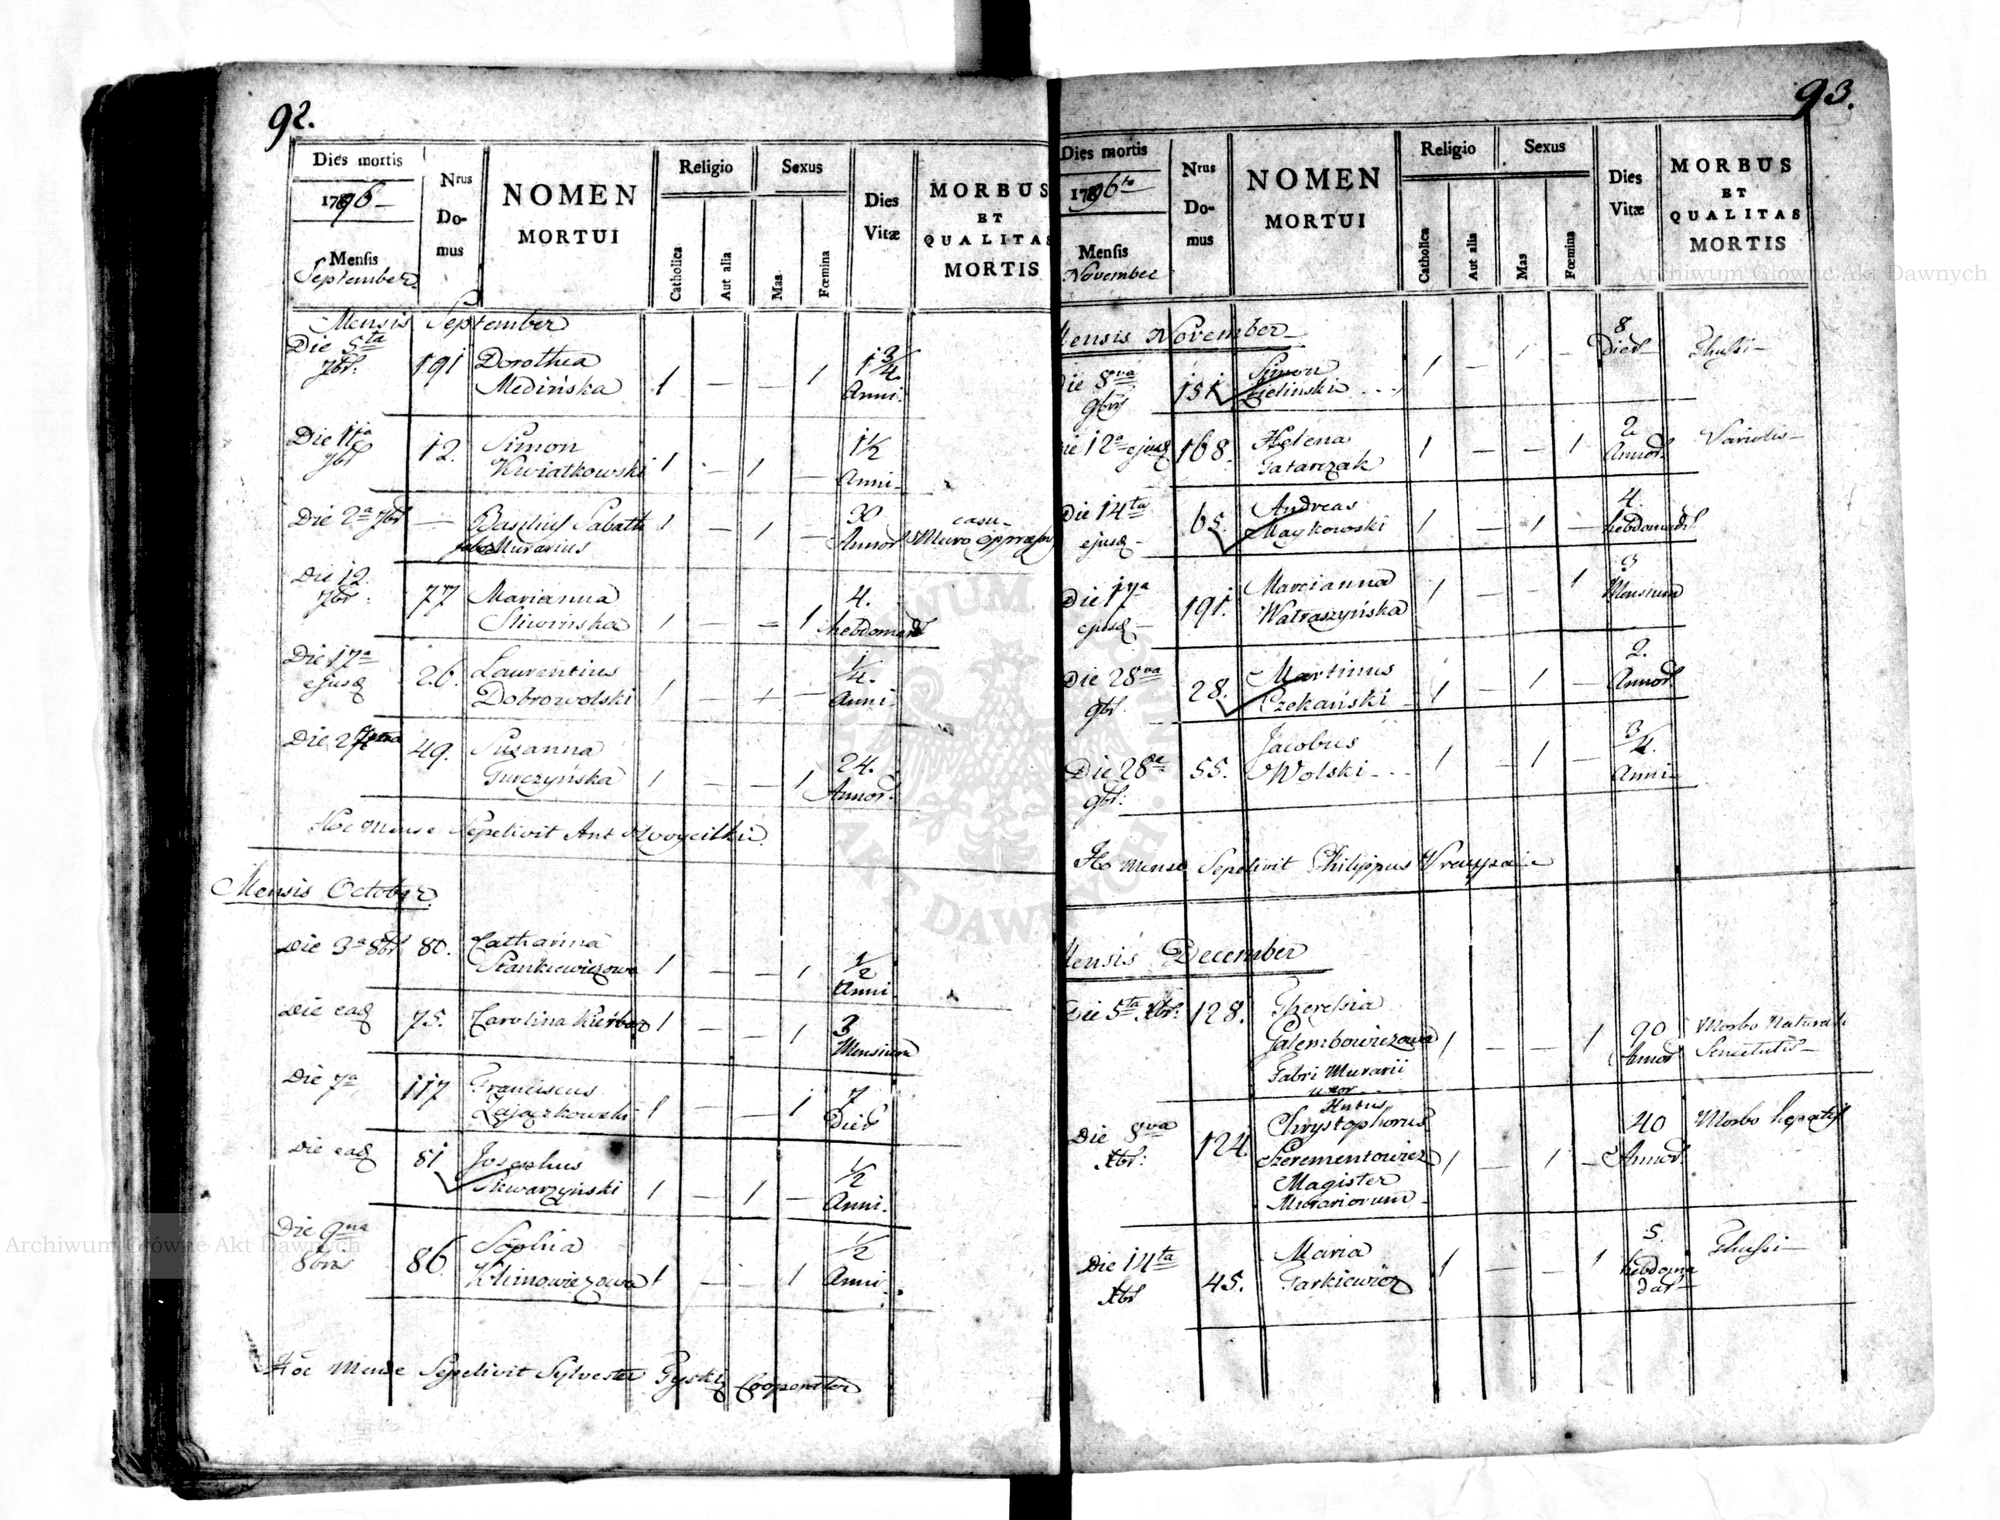 92.
Dies mortis
1796
Mensis
September
Nrus
Do-
mus
NOMEN
MORTUI
Religio
Catholica
Aut alia
Sexus
Mas
Fœmina
Dies
Vitæ
MORBUS
ET
QUALITAS
MORTIS
Mensis September
Die 5ta 7br: 191 Dorothea Medińska 1 — — 1 1 3/4 Anni.
Die 11a 7br 12. Simon Kwiatkowski 1 — 1 — 1 1/2 Anni
Die 2a 7br — Sabath Murarius 1 — 1 — 30 Annor casu Muro
Die 12. 7br: 77 Marianna Sliwińska 1 — — 1 4. hebdomad
Die 17a ejusd 26. Laurentius Dobrowolski 1 — 1 — 1/4. Anni
Die 49. Susanna Turczyńska 1 — — 1 24. Annor.
Hoc Mense Sepelivit Ant
Mensis October
Die 3a 8br 80. Catharina Stankiewiczowa 1 — — 1 1/2 Anni
Die ead 75. Carolina 1 — — 1 3 Mensium
Die 7a 117 Franciscus Zajączkowski 1 — — 1 7 Dies
Die ead 81 Josephus Skwarzyński 1 — 1 — 1/2 Anni.
Die 9na 8bris 86. Sophia Klimowiczowa 1 — — 1 1/2 Anni.
Hoc Mense Sepelivit Sylvester Cooperator
93.
Dies mortis
1796to
Mensis
November
Nrus
Do-
mus
NOMEN
MORTUI
Religio
Catholica
Aut alia
Sexus
Mas
Fœmina
Dies
Vitæ
MORBUS
ET
QUALITAS
MORTIS
Mensis November
Die 8va 9bris 151 Simon Zielinski 1 — 1 — 8 Dies Thussi
Die 12a ejusd 168. Helena Tatarczak 1 — — 1 2 Annor. Variolis
Die 14ta ejusd 65. Andreas Maykowski 1 — 1 — 4. hebdomad
Die 17a ejusd 191. Marcianna Watraszyńska 1 — — 1 3 Mensium
Die 28va 9br. 28. Martinus Czekański 1 — 1 — 2. Annor.
Die 28a 9br: 55. Jacobus Wolski 1 — 1 — 3/4. Anni
Ho Mense Sepelivit Philippus
Mensis December
Die 5ta Xbr. 128. Theressia Galembowiczowa Fabri Murarii uxor 1 — — 1 90 Annor Morbo Naturali Senectutis
Die 8va Xbr: 124. Chrystophorus Szerementowicz Magister Murariorum 1 — 1 — 40 Annor. Morbo
Die 14ta Xbr 45. Maria Tarkiewicz 1 — — 1 5. hebdoma dar Thussi
Archiwum Główne Akt Dawnych
Archiwum Główne Akt Dawnych